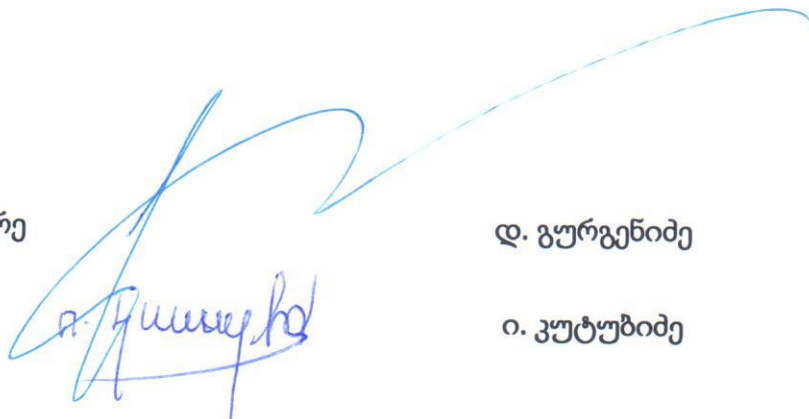 რე დ. გურგენიძე
ი. კუტუბიძე